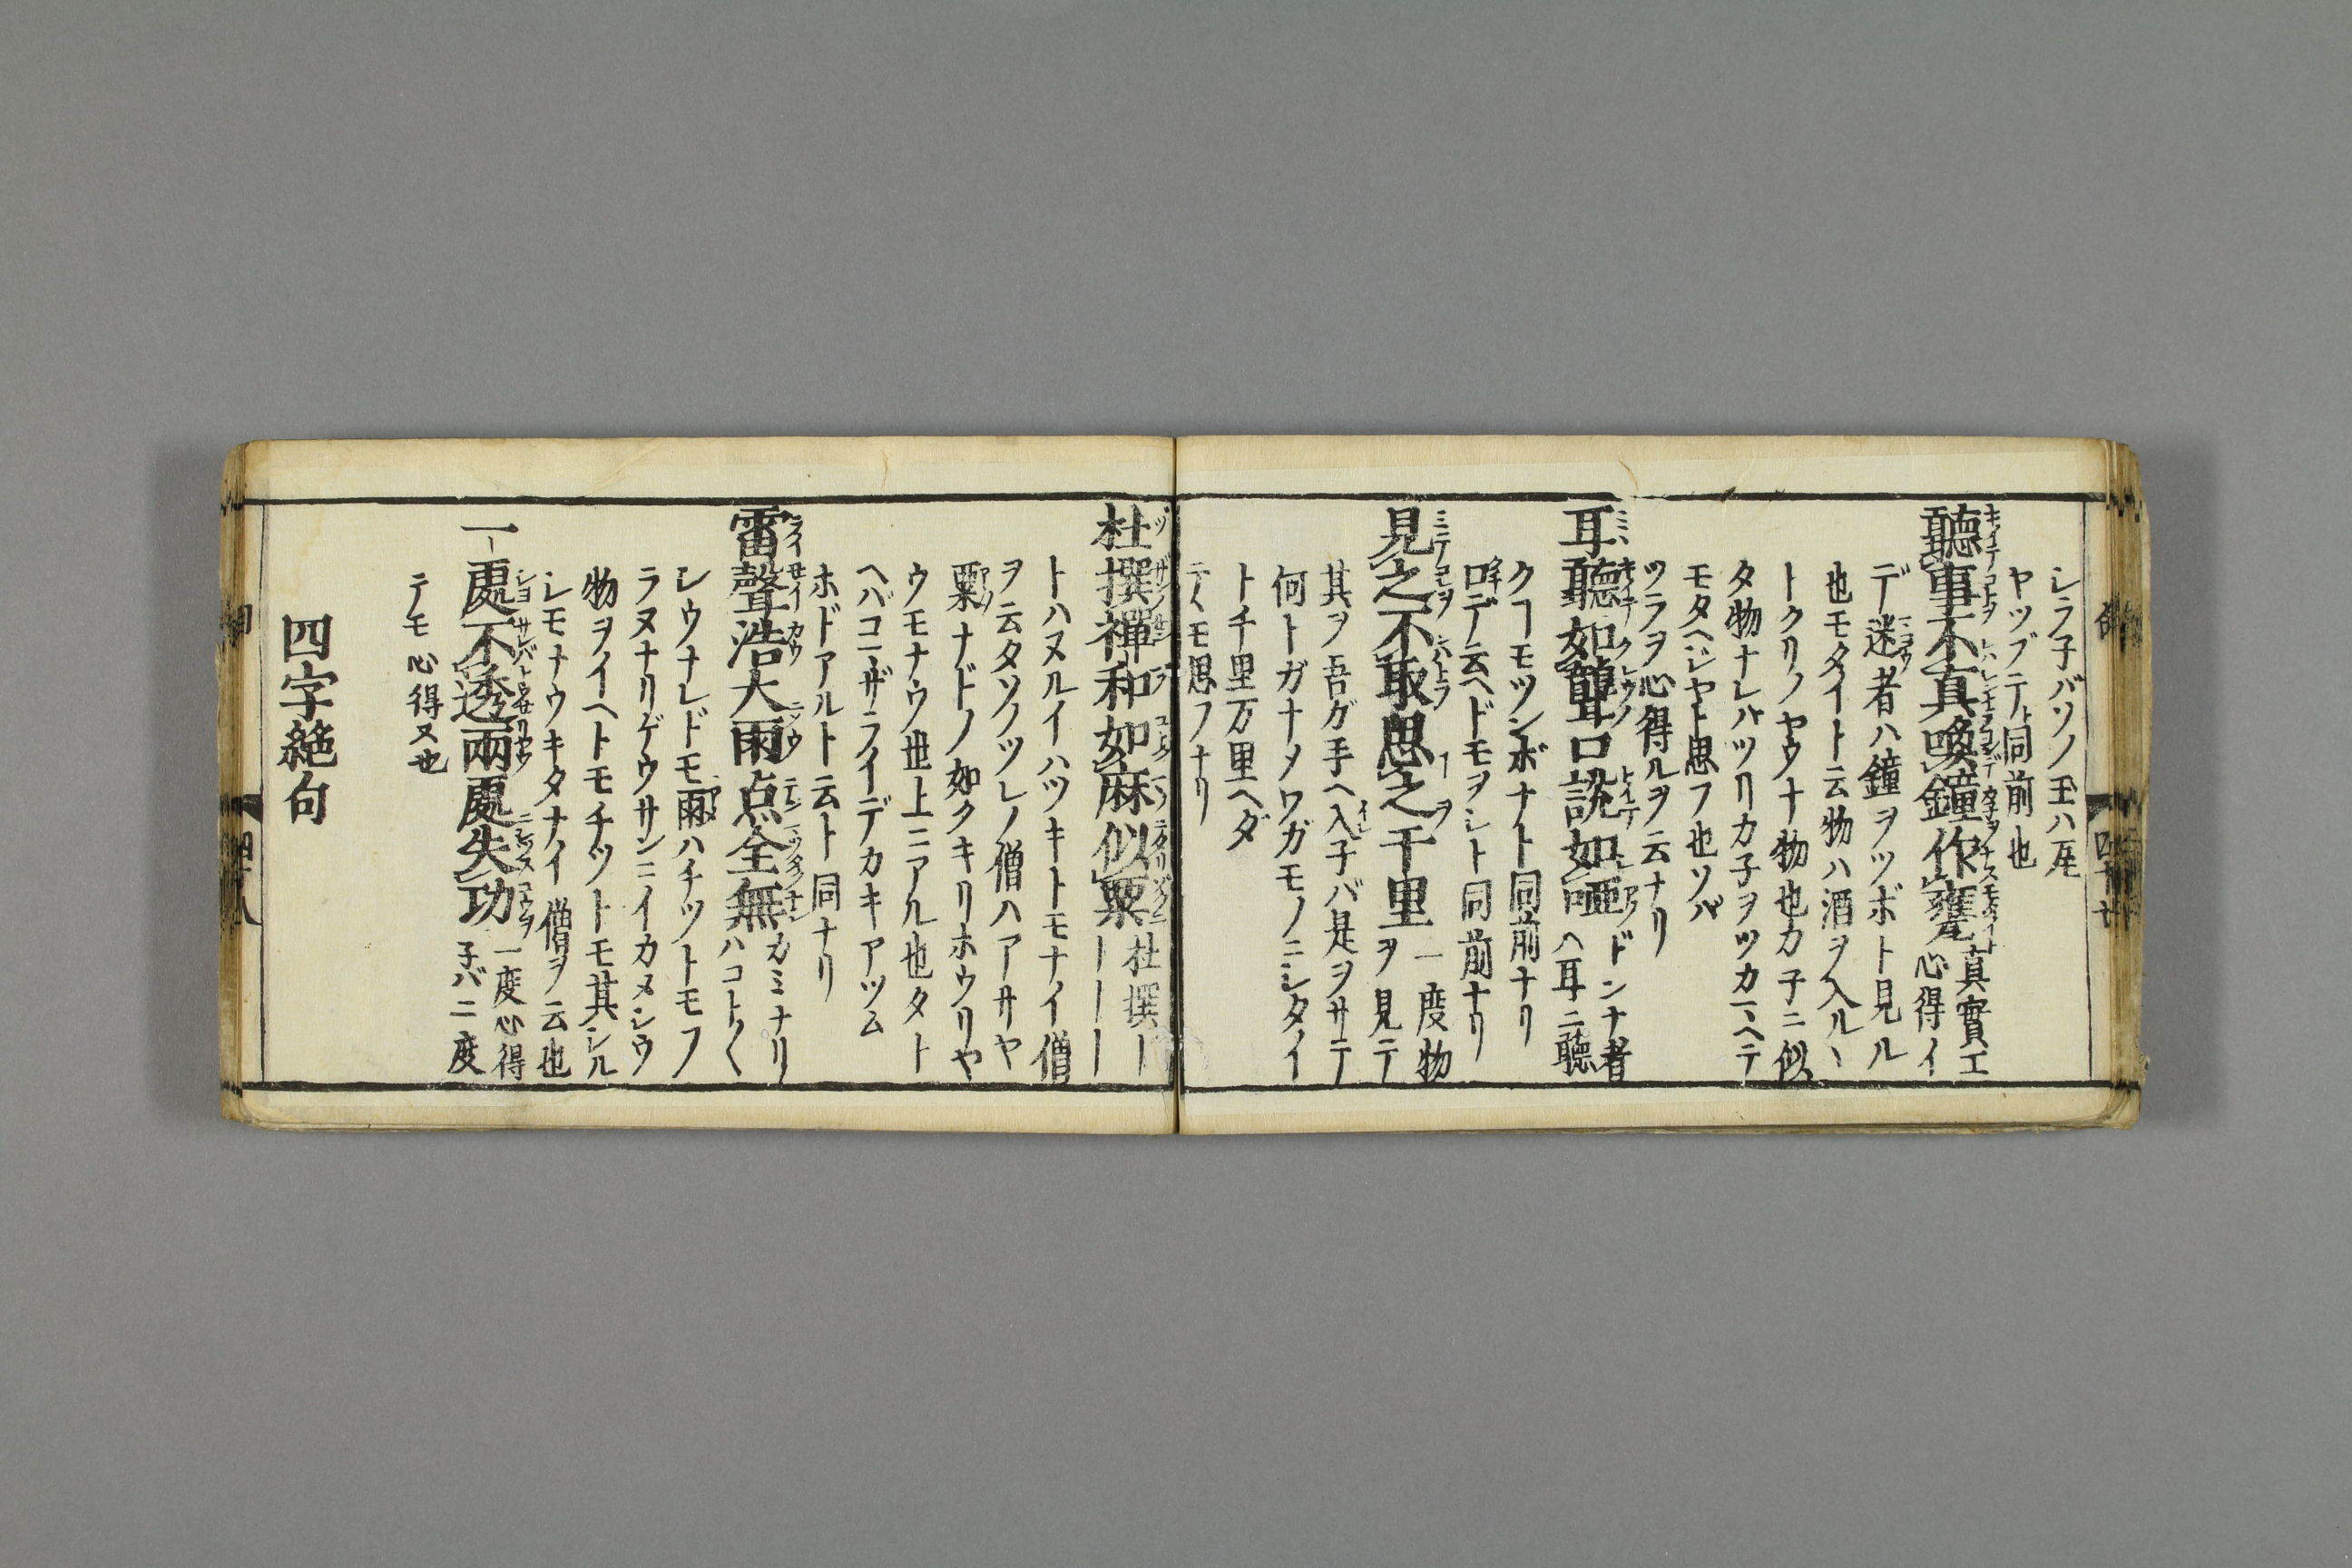 シラ子バソノ玉ハ瓦
ヤツブテト同前也
聽事不真喚鐘作甕 真實エ
心得イ
デ迷者ハ鐘ヲツボト見ル
也モタイト云物ハ酒ヲ入ルヽ
トクリノヤウナ物也カ子ニ似
タ物ナレバツリカ子ヲツカマヘテ
モタヘジヤト思フ也ソバ
ツラヲ心得ルヲ云ナリ
耳聽如聾口説如啞 ドンナ者
ヘ耳ニ聽
クヿモツンボナト同前ナリ
口デ云ヘドモヲシト同前ナリ
見之不取思之千里 一度物
ヲ見テ
其ヲ吾ガ手ヘ入子バ是ヲサテ
何トガナメワガモノニシタイ
ト千里万里ヘダ
テヽモ思フナリ
杜撰禪和如麻似粟 杜撰ー
ーーー
トハヌルイハツキトモナイ僧
ヲ云タソノツレノ僧ハアサヤ
粟ナドノ如クキリホウリヤ
ウモナウ世上ニアル也タト
ヘバコマザライデカキアツム
ホドアルト云ト同ナリ
雷聲浩大雨点全無 カミナリ
ハコト〱
シウナレドモ雨ハチツトモフ
ラヌナリゲウサンニイカメシウ
物ヲイヘトモチツトモ其シル
シモナウキタナイ僧ヲ云也
一處不透兩處失功 一度心得
子バ二度
テモ心得ヌ也
四字絶句
四十七